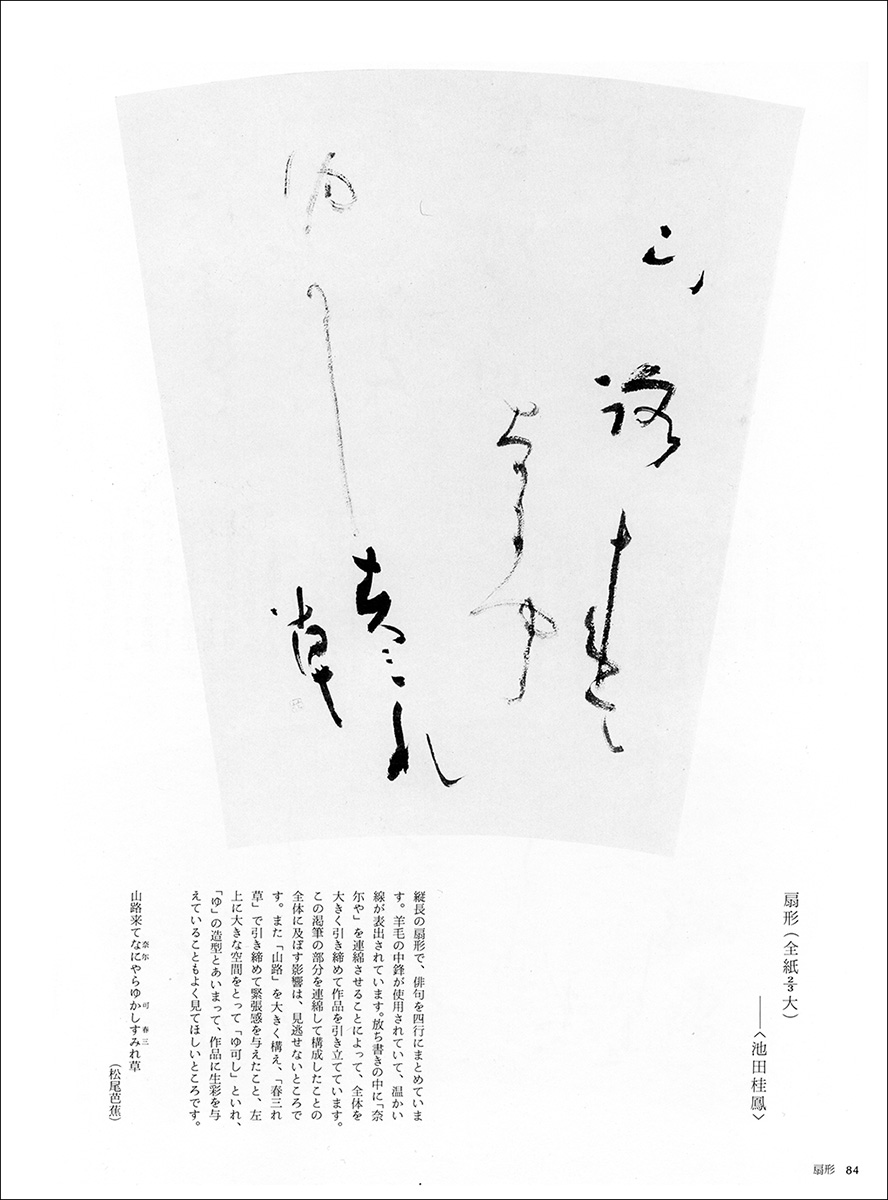 山路来て
奈尓やら
ゆ可し春三れ
草
扇形(全紙2/3大)
——〈池田桂鳳〉
縦長の扇形で、俳句を四行にまとめていま
す。羊毛の中鋒が使用されていて、温かい
線が表出されています。放ち書きの中に「奈
尓や」を連綿させることによって、全体を
大きく引き締めて作品を引き立てています。
この渇筆の部分を連綿して構成したことの
全体に及ぼす影響は、見逃せないところで
す。また「山路」を大きく構え、「春三れ
草」で引き締めて緊張感を与えたこと、左
上に大きな空間をとって「ゆ可し」といれ、
「ゆ」の造型とあいまって、作品に生彩を与
えていることもよく見てほしいところです。
奈尓 可 春三
山路来てなにやらゆかしすみれ草
(松尾芭蕉)
扇形 84